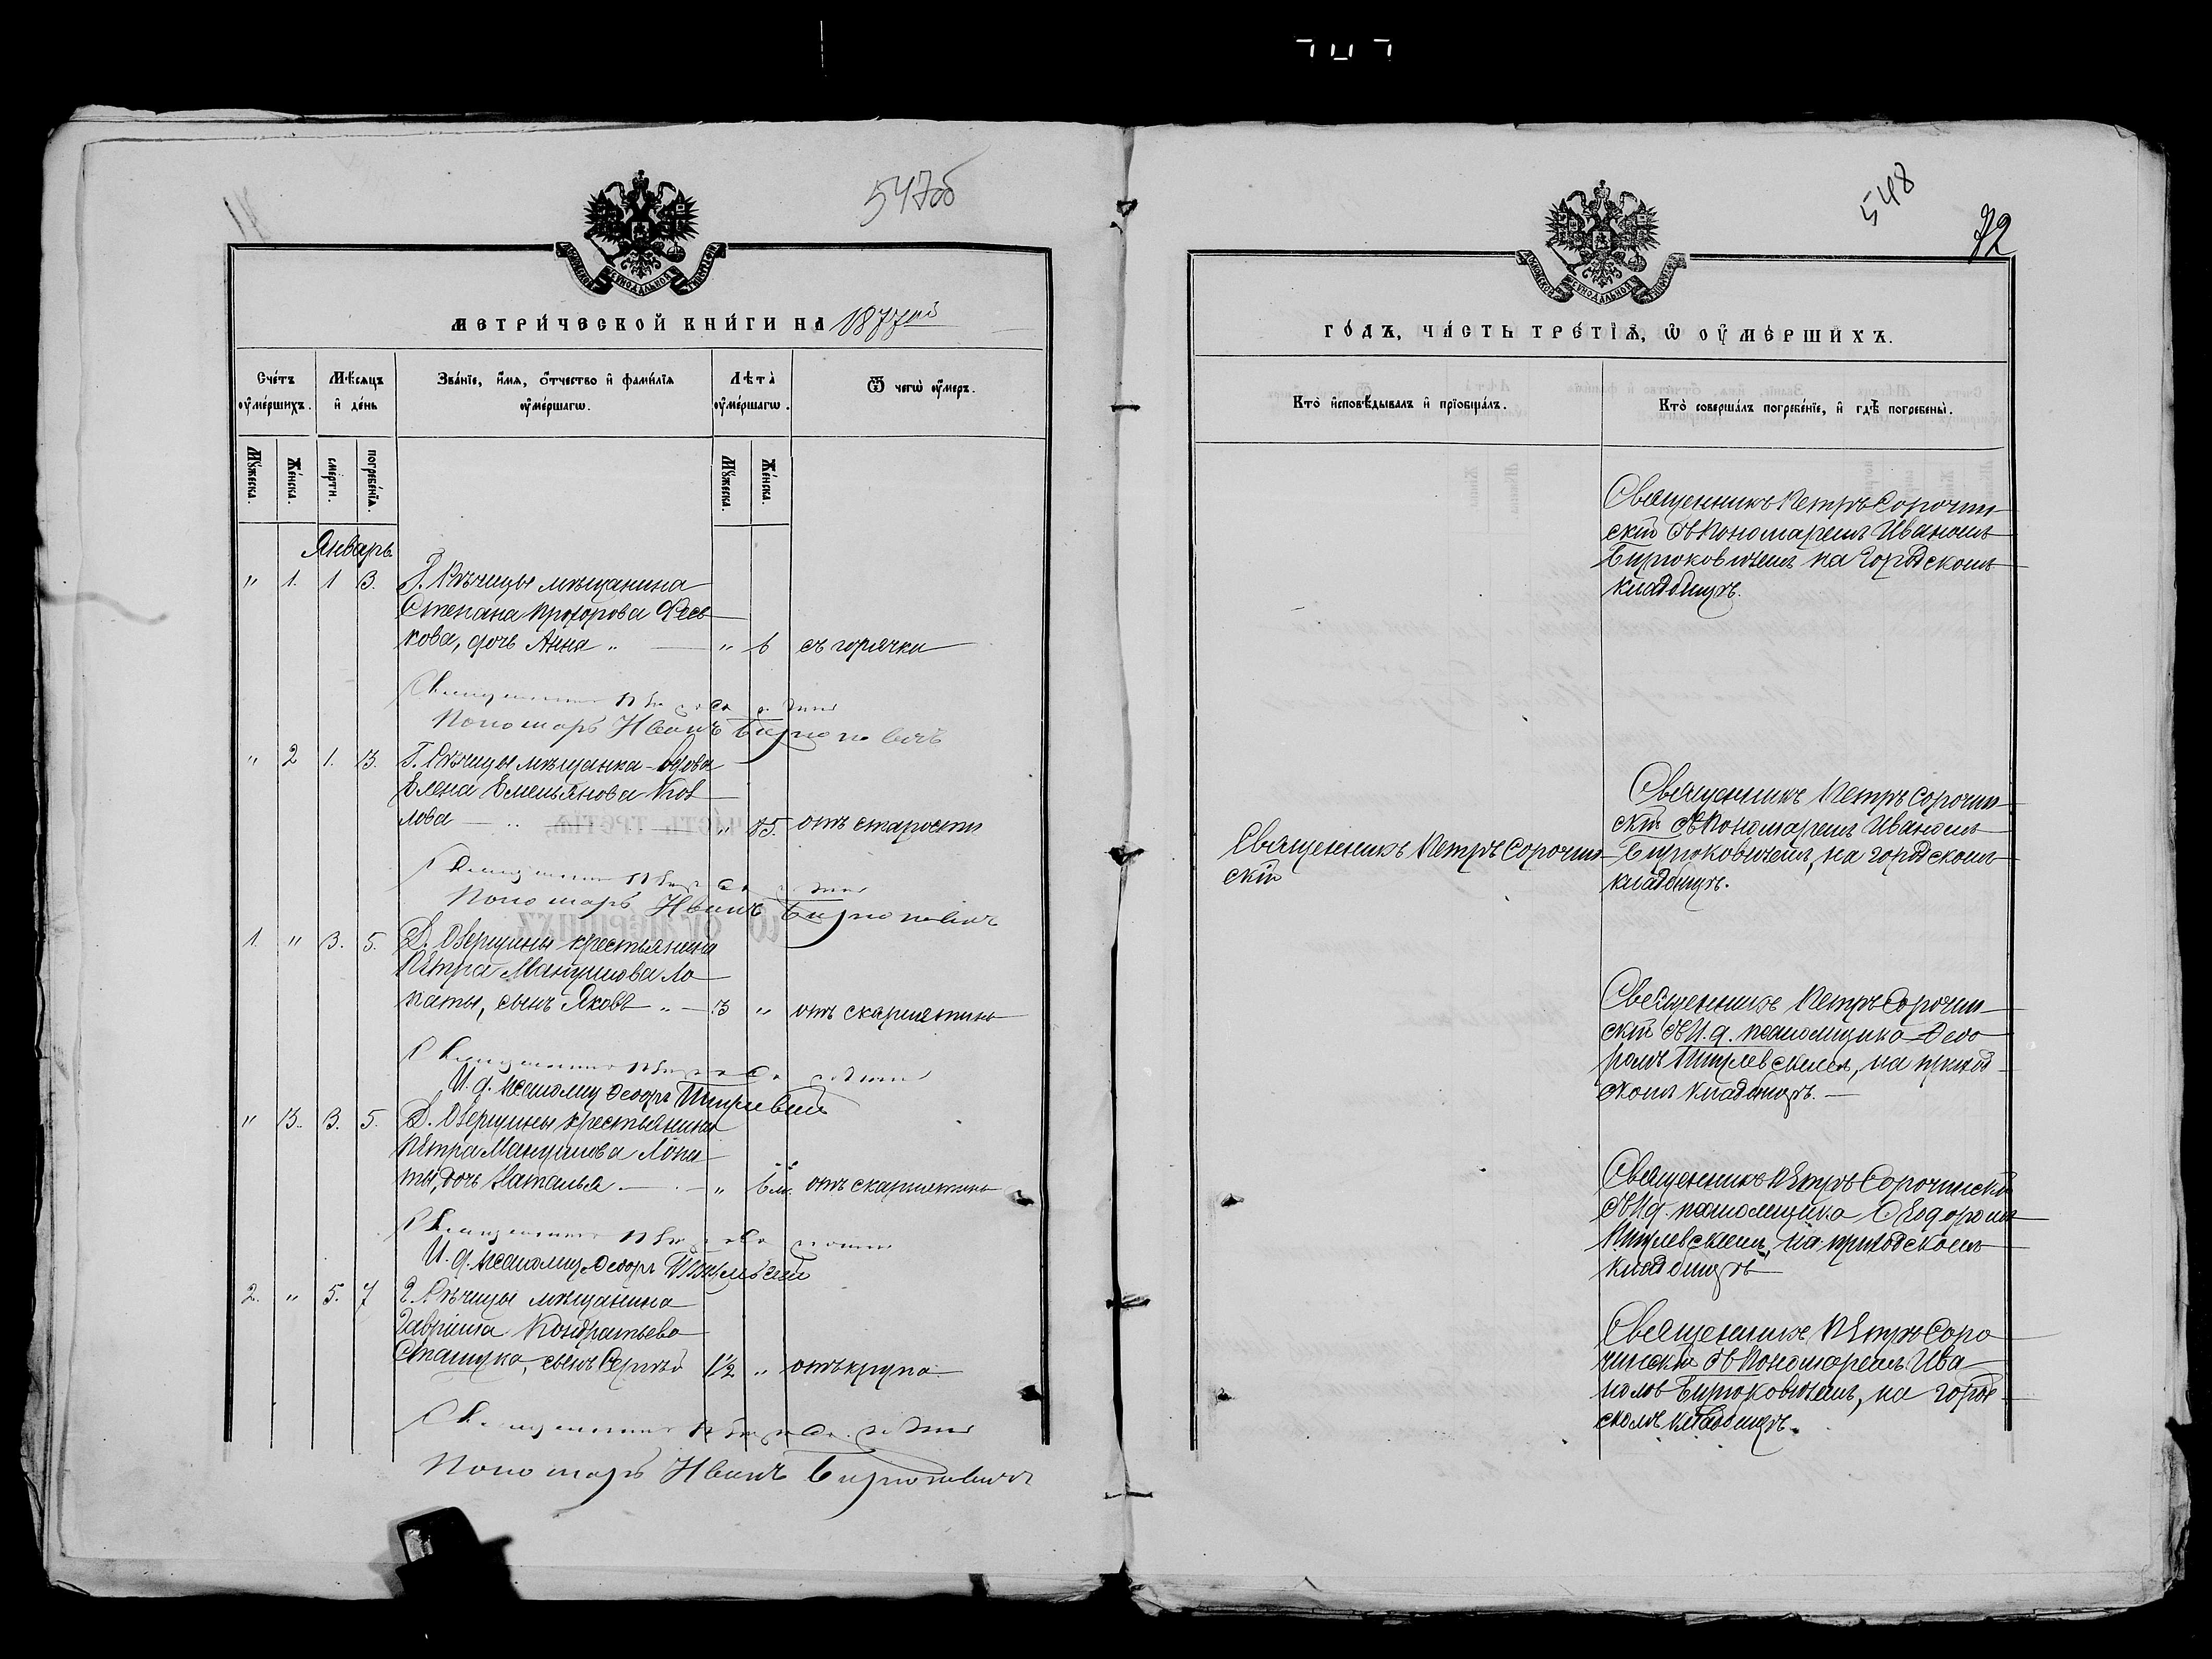 547об
МЕТРИ́ЧЕСКОЙ КНИ́ГИ НА 1877ый
Сче́тъ ᲂу҆ме́ршихъ.
Мѣ́сяцъ и҆ де́нь
Зва́нїе, и҆́мя, ѻ҆́тчество и҆ фами́лїя ᲂу҆ме́ршагѡ.
Лѣта̀ ᲂу҆ме́ршагѡ.
Ѿ чегѡ̀ ᲂу҆́меръ.
Мꙋ́жеска.
Же́нска.
сме́рти.
погребе́нїя.
Мꙋ́жеска.
Же́нска.
Январь
" 1. 1 3. Г. Рѣчицы мѣщанина
Степана Прохорова Фесь
кова, дочь Анна " — " 6 съ горячки
Священникъ
Пономарь Иванъ Бирюковичъ
" 2 1. 3. Г. Рѣчицы мѣщанка-вдова
Елена Емельянова Коз
лова — " — " 85. отъ старости
Священникъ
Пономарь Иванъ Бирюковичъ
1. " 3. 5. Д. Озерщины крестьянина
Петра Манушова Ло
паты, сынъ Яковъ " — 3 " отъ скарлятины
Священникъ
И. д. псаломщ Ѳеодръ
" 3. 3. 5. Д. Озерщины крестьянина
Петра Манушова Лопа
ты, дочь Наталья — " 6 м. отъ скарлятины
Священникъ
И. д. псаломщ Ѳеодръ
2. " 5. 7 Г. Рѣчицы мѣщанина
Гавріила Кондратьева
Сташука, сынъ Сергѣй 1½ " отъ крупа
Священникъ
Пономарь Иванъ Бирюковичъ
548
72
ГО́ДЪ, ЧА́СТЬ ТРЕ́ТЇѦ, Ѡ҆ ОУ҆МЕ́РШИХЪ.
Кто̀ и҆сповѣ́дывалъ и҆ прїобща́лъ.
Кто̀ соверша́лъ погребе́нїе, и҆ гдѣ̀ погребены̀.
Священникъ Петръ Сорочин
скій съ Пономаремъ Иваномъ
Бирюковичемъ на городскомъ
кладбищѣ.
Священникъ Петръ Сорочин
скій
Священникъ Петръ Сорочин
скій съ Пономаремъ Иваномъ
Бирюковичемъ, на городскомъ
кладбищѣ.
Священникъ Петръ Сорочин
скій съ И. д. псаломщика Ѳеодо
ромъ на приход
скомъ кладбищѣ. —
Священникъ Петръ Сорочинскій
съ И. д. псаломщика Ѳеодоромъ
на приходскомъ
кладбищѣ
Священникъ Петръ Соро
чинскій съ Пономаремъ Ива
номъ Бирюковичемъ, на город
скомъ кладбищѣ.